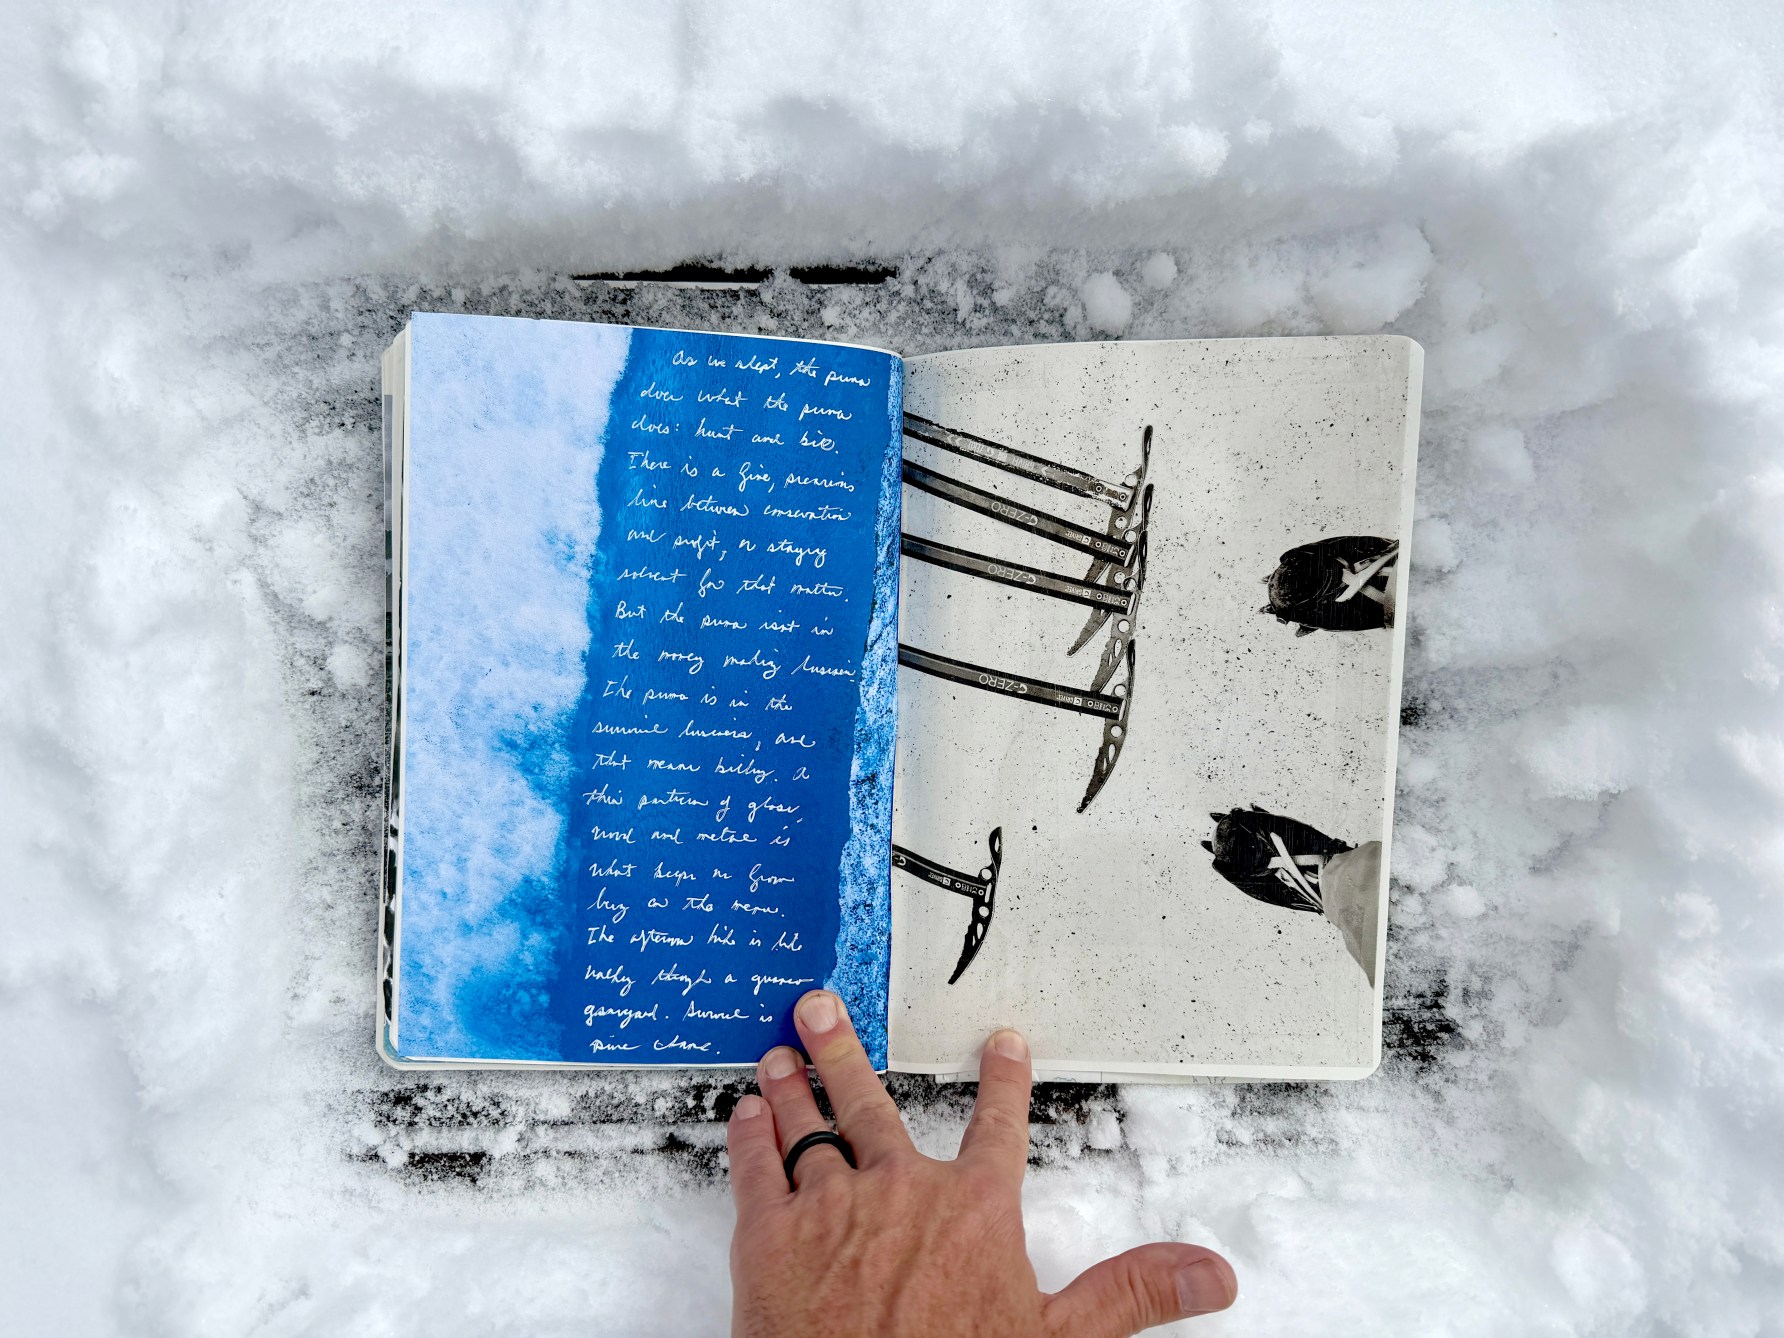 As we slept, the puma
does what the puma
does: hunt and kill.
There is a fine, precarious
line between conservation
and profit, or staying
solvent for that matter.
But the puma isnt in
the money making business.
The puma is in the
survival business, and
that means killing. A
thin partition of glass,
wood and metal is
what keeps us from
being on the menu.
The afternoon hike is like
walking through a guanaco
graveyard. Survival is
pure chance.
G-ZERO
G-ZERO
G-ZERO